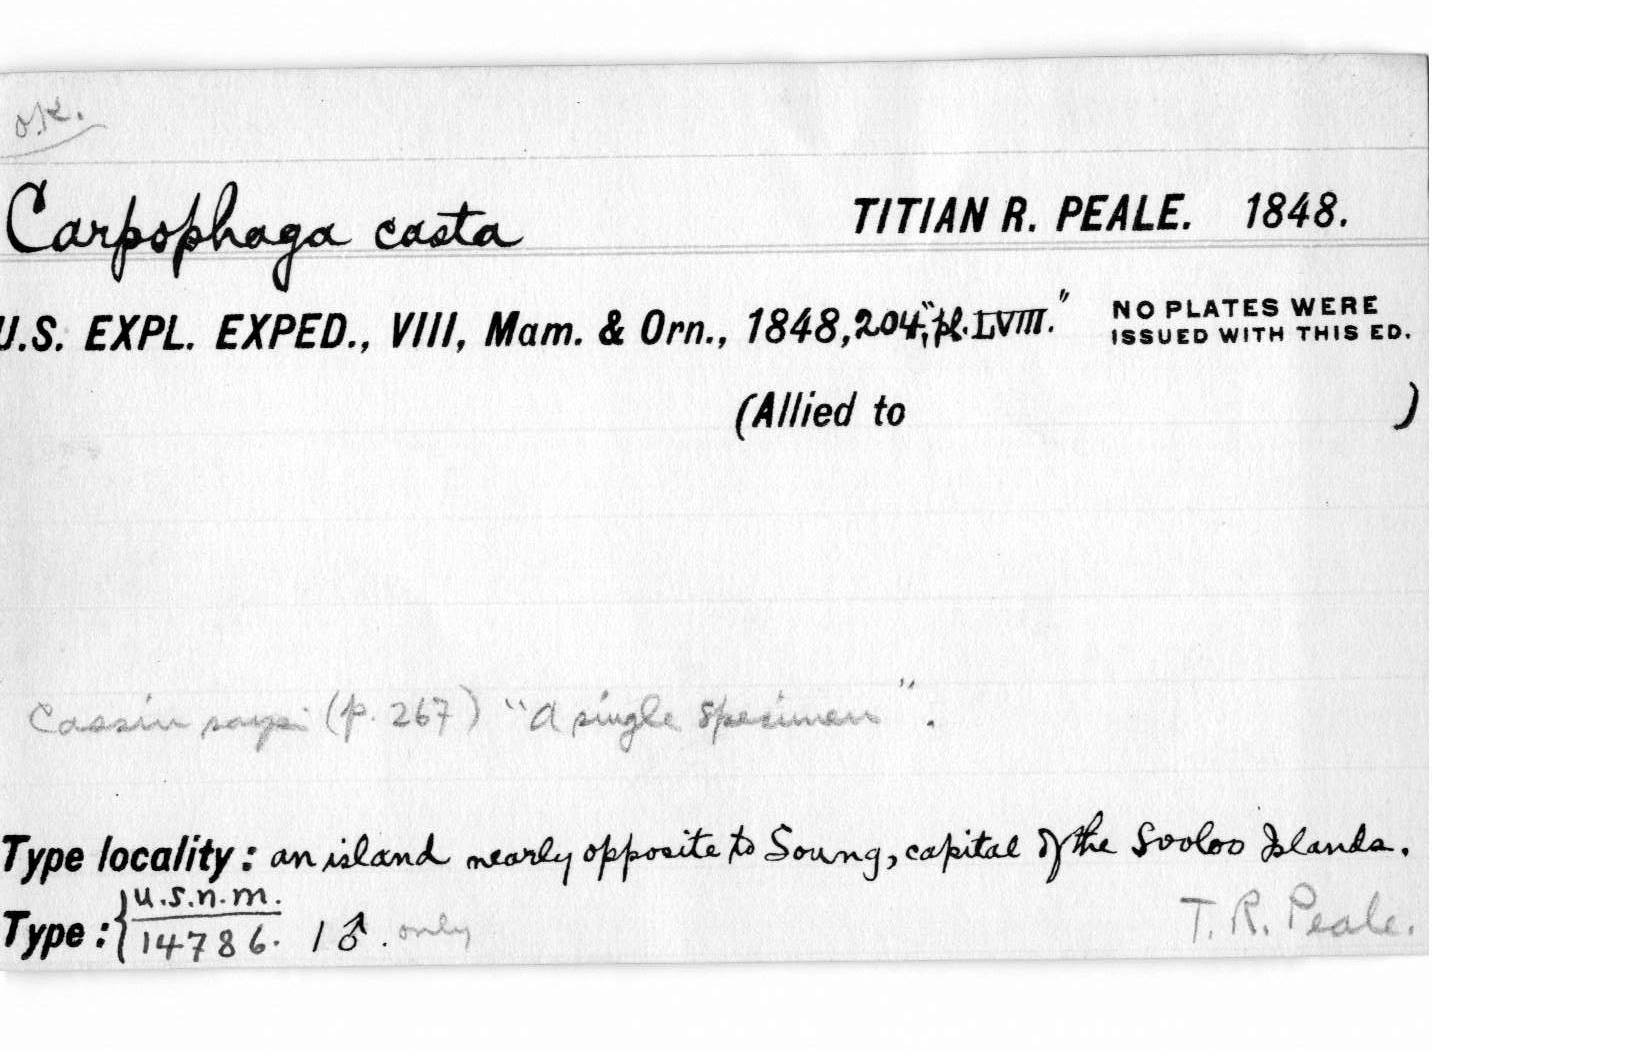 O.K.
Carpophaga casta TITIAN R. PEALE. 1848.
U.S. EXPL. EXPED., VIII, Mam. & Orn., 1848, 204, "pl. LVIII." NO PLATES WERE
ISSUED WITH THIS ED.
(Allied to )
Cassin says (p. 267) "a single specimen".
Type locality: an island nearly opposite to Soung, capital of the Sooloo Islands.
Type: { U.S.N.M.
14786. 1 ♂. only T. R. Peale.